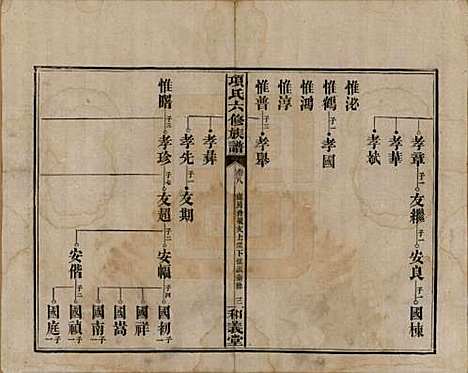 孝章 子一 友繼 子一 安良 子一 國棟
孝華
孝斌
惟泌
惟鶴 子一 孝國
惟鴻
惟淳
惟普 子二 孝舉
項氏六修族譜
卷八
三
和義堂
孝彝
孝先 子一 友期
惟曙 子三 孝珍 子七 友超 子二 安幅 子四 國初 一子
國祥
國嵩
國南 一子
安偕 子二 國禎 一子
國庭 一子